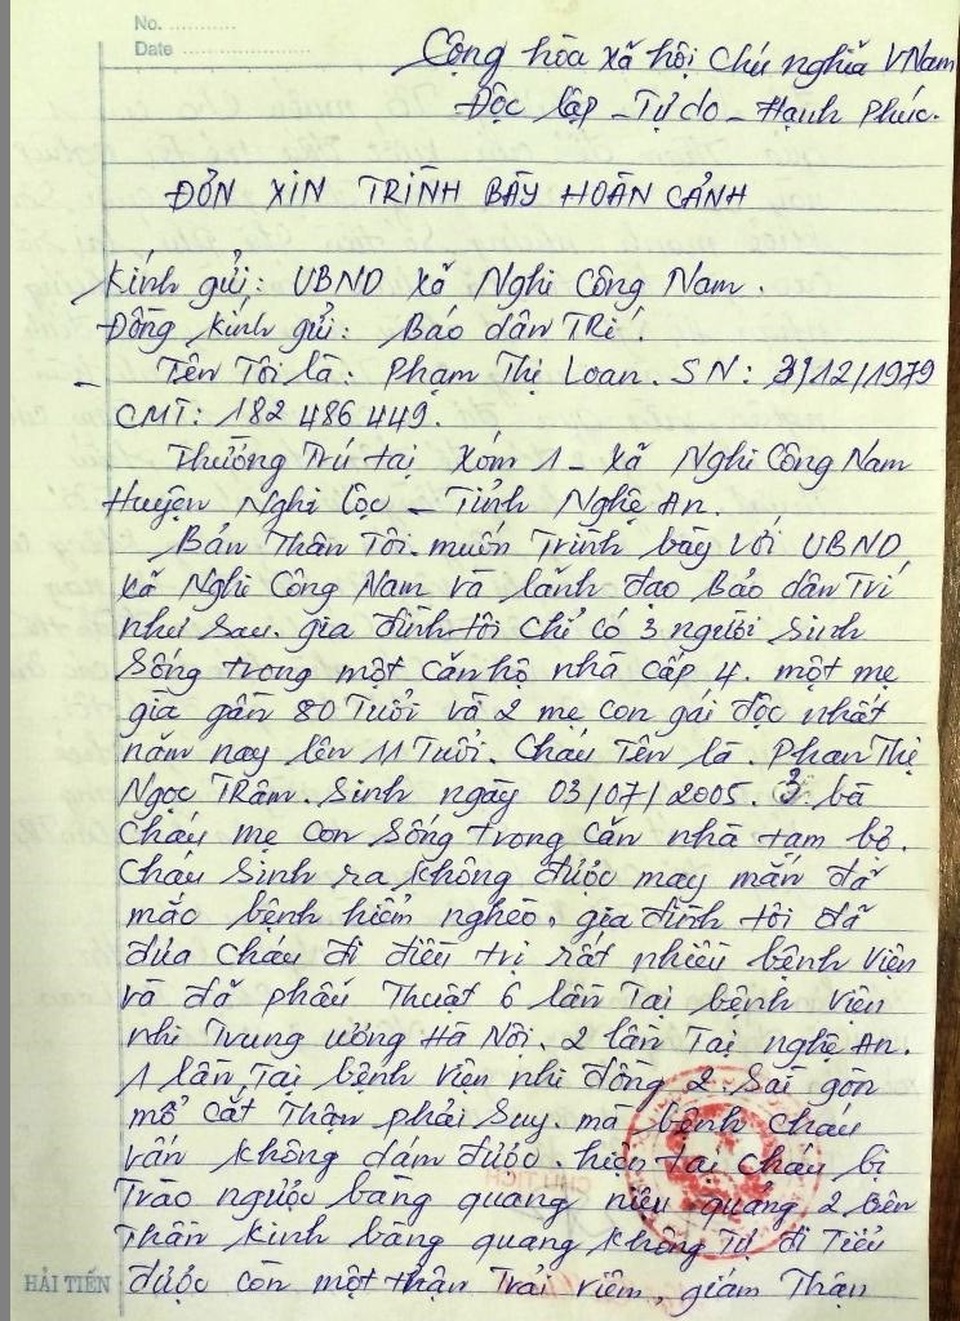 No. ............
Date ......................
Cộng hòa xã hội Chủ nghĩa VNam
Độc lập - Tự do - Hạnh Phúc.
ĐƠN XIN TRÌNH BÀY HOÀN CẢNH
Kính gửi: UBND xã Nghi Công Nam.
Đồng kính gửi: Báo dân TRí.
- Tên Tôi là: Phạm Thị Loan. SN: 3/12/1979
CMT: 182 486 449.
Thường Trú tại xóm 1 - xã Nghi Công Nam
Huyện Nghi Lộc - Tỉnh Nghệ An.
Bản Thân Tôi muốn Trình bày với UBND
xã Nghi Công Nam và lãnh đạo Báo dân Trí
như sau. gia đình tôi chỉ có 3 người sinh
sống trong một căn hộ nhà cấp 4. một mẹ
già gần 80 Tuổi và 2 mẹ con gái độc nhất
năm nay lên 11 Tuổi. Cháu Tên là. Phan Thị
Ngọc TRâm. Sinh ngày 03/07/2005. 3 bà
cháu mẹ con sống trong căn nhà tạm bợ.
Cháu Sinh ra không được may mắn đã
mắc bệnh hiểm nghèo, gia đình tôi đã
đưa cháu đi điều trị rất nhiều bệnh viện
và đã phẩu Thuật 6 lần Tại bệnh viện
nhi Trung ương Hà Nội, 2 lần Tại nghệ An.
1 lần Tại bệnh viện nhi đồng 2 Sài gòn
mổ cắt Thận phải suy. mà bệnh cháu
vẫn không dám được. hiện tại cháu bị
Trào ngược bàng quang niệu quảng 2 bên
Thần kinh bàng quang không Tự đi Tiểu
được còn một thận Trái viêm, giảm Thận
CHỦ TỊCH
HẢI TIẾN